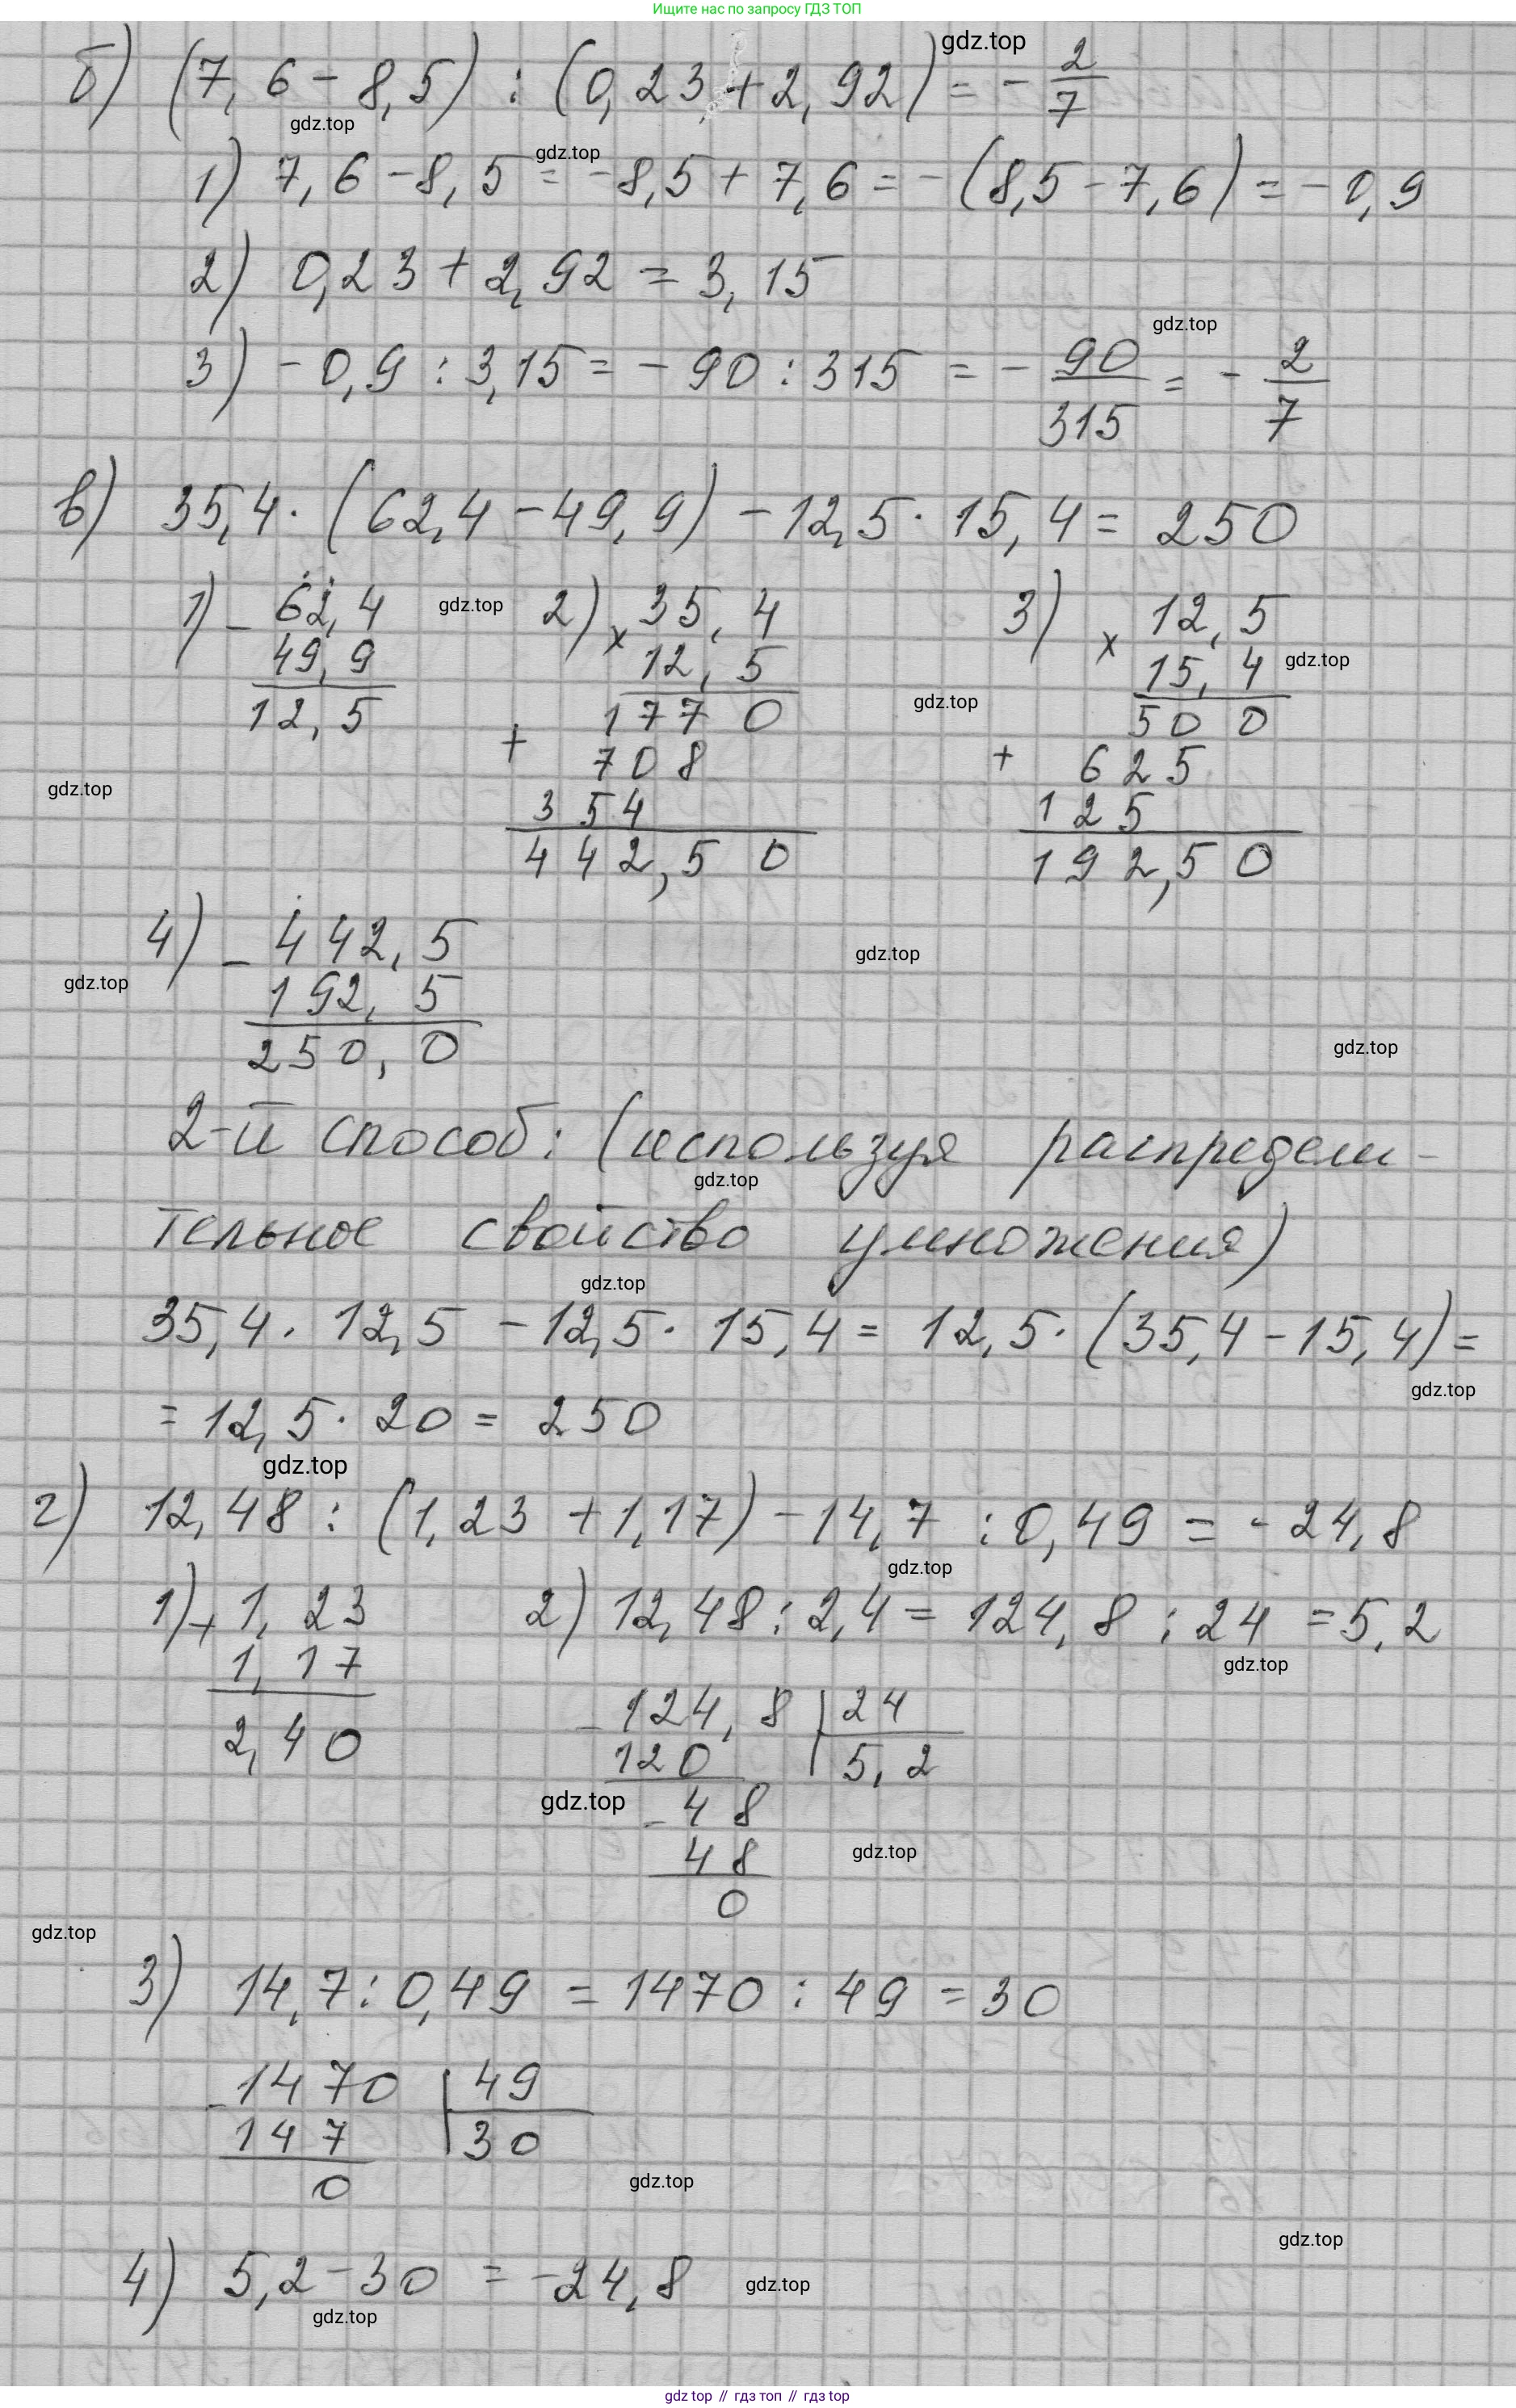 Ищите нас по запросу ГДЗ ТОП
gdz.top
б) (7,6 - 8,5) : (0,23 + 2,92) = - 2/7
gdz.top
gdz.top
1) 7,6 - 8,5 = -8,5 + 7,6 = -(8,5 - 7,6) = -0,9
2) 0,23 + 2,92 = 3,15
gdz.top
3) -0,9 : 3,15 = -90 : 315 = - 90/315 = - 2/7
в) 35,4 · (62,4 - 49,9) - 12,5 · 15,4 = 250
1) - 62,4
49,9
12,5
gdz.top
2) × 35,4
12,5
1770
+ 708
354
442,50
gdz.top
3) × 12,5
15,4
500
+ 625
125
192,50
gdz.top
gdz.top
4) - 442,5
192,5
250,0
gdz.top
gdz.top
gdz.top
2-й способ: (используя распредели-
gdz.top
тельное свойство умножения)
gdz.top
35,4 · 12,5 - 12,5 · 15,4 = 12,5 · (35,4 - 15,4) =
gdz.top
= 12,5 · 20 = 250
gdz.top
г) 12,48 : (1,23 + 1,17) - 14,7 : 0,49 = -24,8
gdz.top
1) + 1,23
1,17
2,40
2) 12,48 : 2,4 = 124,8 : 24 = 5,2
gdz.top
- 124,8 | 24
120 | 5,2
gdz.top
- 48
48
0
gdz.top
gdz.top
3) 14,7 : 0,49 = 1470 : 49 = 30
- 1470 | 49
147 | 30
0
gdz.top
gdz.top
4) 5,2 - 30 = -24,8
gdz.top
gdz.top
gdz top // гдз топ // гдз top